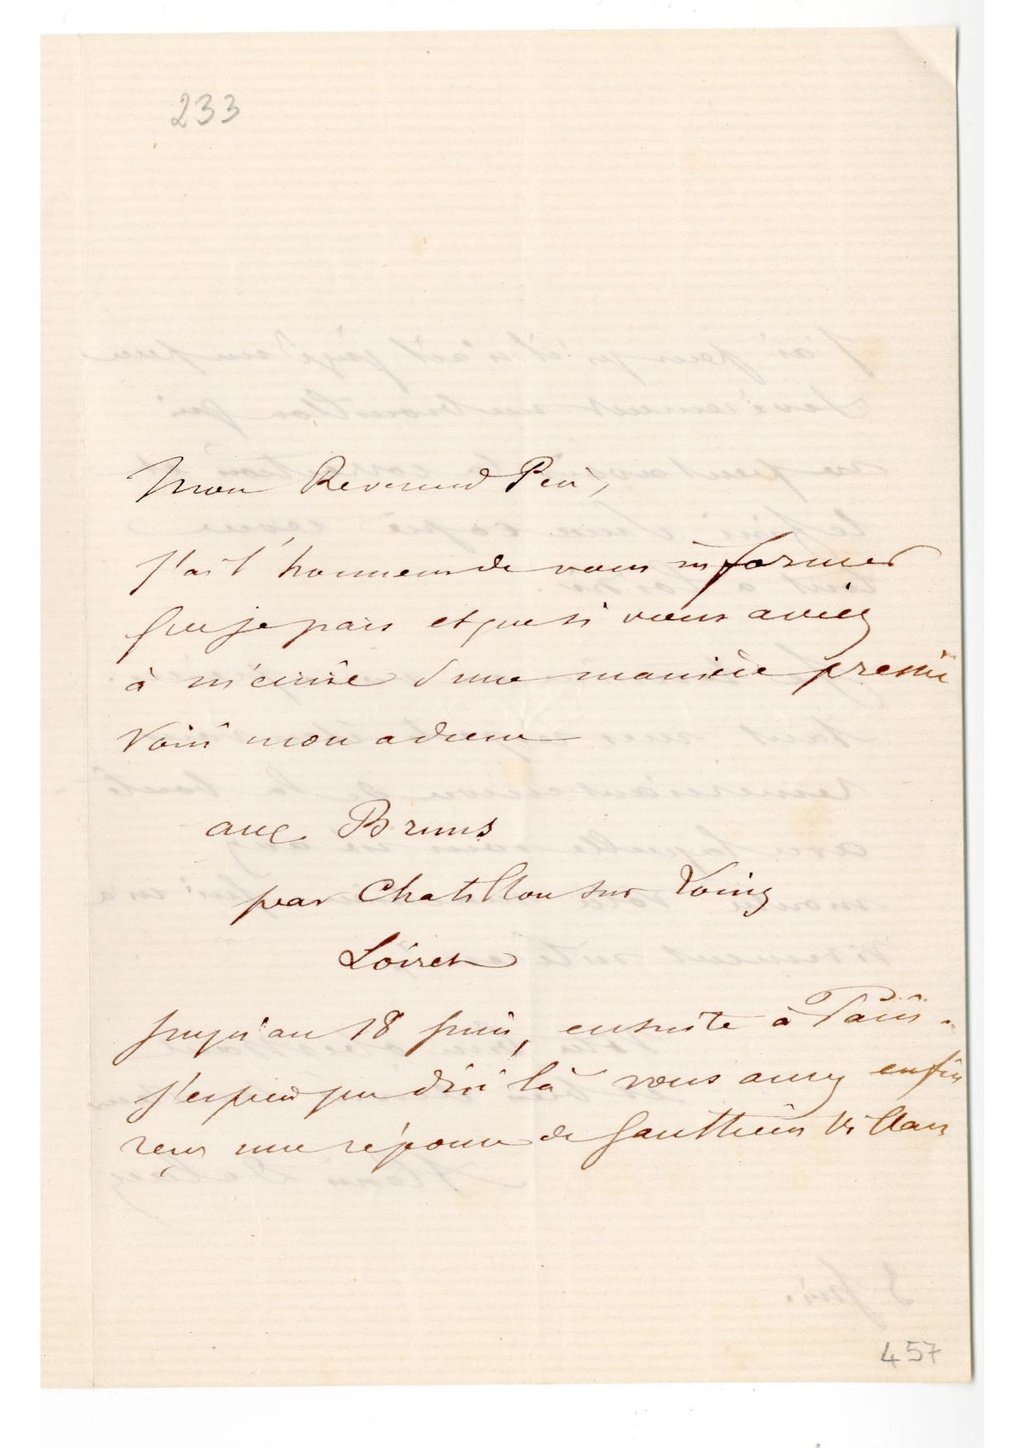 233
Mon Reverend Père,
j'ai l'honneur de vous informer
que je pars et que si vous aviez
à m'écrire d'une manière pressée
Voici mon adresse
aux Bruns
par Chatillon sur Loing
Loiret
jusqu'au 18 juin, ensuite à Paris.
j'espère que d'ici là vous aurez enfin
reçu une réponse de Gauthier Villars
457